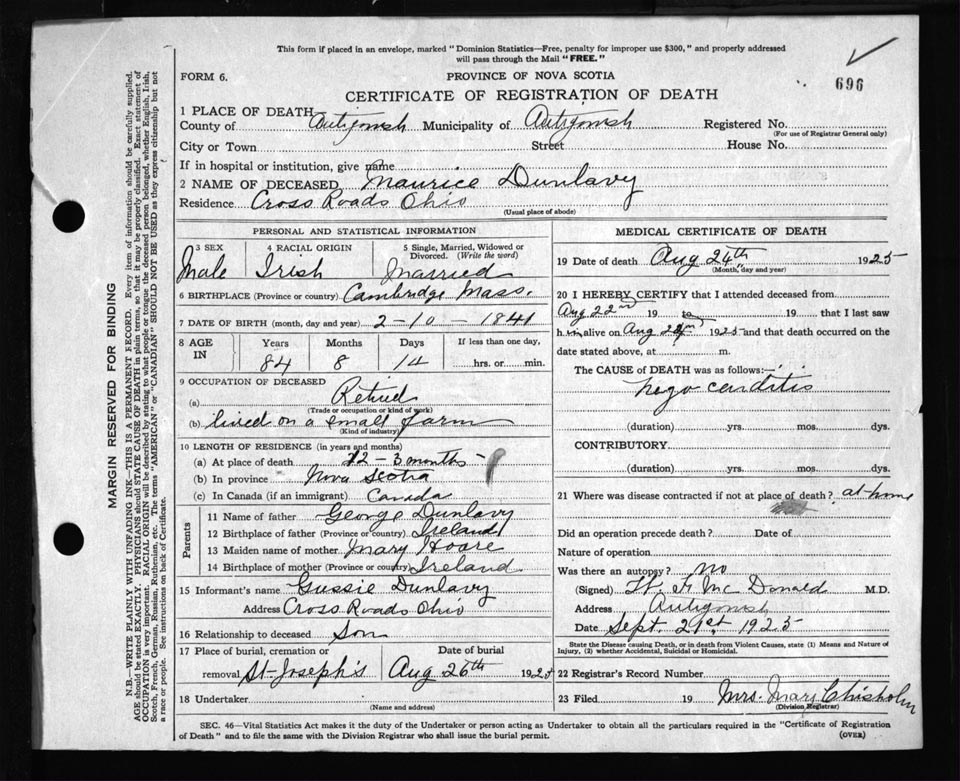 This form if placed in an envelope, marked "Dominion Statistics—Free, penalty for improper use $300," and properly addressed
will pass through the Mail "FREE."
696
FORM 6.
PROVINCE OF NOVA SCOTIA
CERTIFICATE OF REGISTRATION OF DEATH
1 PLACE OF DEATH
County of Antigonish Municipality of Antigonish Registered No.
(For use of Registrar General only)
City or Town Street House No.
If in hospital or institution, give name
2 NAME OF DECEASED Maurice Dunlavy
Residence Cross Roads Ohio
(Usual place of abode)
PERSONAL AND STATISTICAL INFORMATION
3 SEX 4 RACIAL ORIGIN 5 Single, Married, Widowed or
Divorced. (Write the word)
Male Irish Married
6 BIRTHPLACE (Province or country) Cambridge Mass.
7 DATE OF BIRTH (month, day and year) 2-10-1841
8 AGE IN Years Months Days If less than one day,
84 8 14 hrs. or min.
9 OCCUPATION OF DECEASED
(a) Retired
(Trade or occupation or kind of work)
(b) lived on a small farm
(Kind of industry)
10 LENGTH OF RESIDENCE (in years and months)
(a) At place of death 12 - 3 months -
(b) In province Nova Scotia
(c) In Canada (if an immigrant) Canada
Parents
11 Name of father George Dunlavy
12 Birthplace of father (Province or country) Ireland
13 Maiden name of mother Mary Hoare
14 Birthplace of mother (Province or country) Ireland
15 Informant's name Gussie Dunlavy
Address Cross Roads Ohio
16 Relationship to deceased Son
17 Place of burial, cremation or Date of burial
removal St-Joseph's Aug 26th 1925
18 Undertaker
(Name and address)
MEDICAL CERTIFICATE OF DEATH
19 Date of death Aug 24th 1925
(Month, day and year)
20 I HEREBY CERTIFY that I attended deceased from
Aug 22nd 19 to 19 that I last saw
h alive on Aug 1925 and that death occurred on
date stated above, at m.
The CAUSE of DEATH was as follows:
(duration) yrs. mos. dys.
CONTRIBUTORY.
(duration) yrs. mos. dys.
21 Where was disease contracted if not at place of death? at home
Did an operation precede death? Date of
Nature of operation
Was there an autopsy? no
(Signed) Mc Donald M.D.
Address Antigonish
Date Sept. 21st, 1925
State the Disease causing Death, or in death from Violent Causes, state (1) Means and Nature of
Injury, (2) whether Accidental, Suicidal or Homicidal.
22 Registrar's Record Number
23 Filed 19 Mrs. Mary Chisholm
(Division Registrar)
SEC. 46—Vital Statistics Act makes it the duty of the Undertaker or person acting as Undertaker to obtain all the particulars required in the "Certificate of Registration
of Death" and to file the same with the Division Registrar who shall issue the burial permit.
(OVER)
MARGIN RESERVED FOR BINDING
N.B.—WRITE PLAINLY WITH UNFADING INK—THIS IS A PERMANENT RECORD. Every item of information should be carefully supplied.
AGE should be stated EXACTLY. PHYSICIANS should STATE CAUSE OF DEATH in plain terms, so that it may be properly classified. Exact statement of
OCCUPATION is very important. RACIAL ORIGIN will be described by stating to what people or tongue the deceased person belonged, whether English, Irish,
Scotch, French, German, Russian, Ruthenian, etc. The terms "AMERICAN" or "CANADIAN" SHOULD NOT BE USED as they express citizenship but not
a race or people. See instructions on back of Certificate.